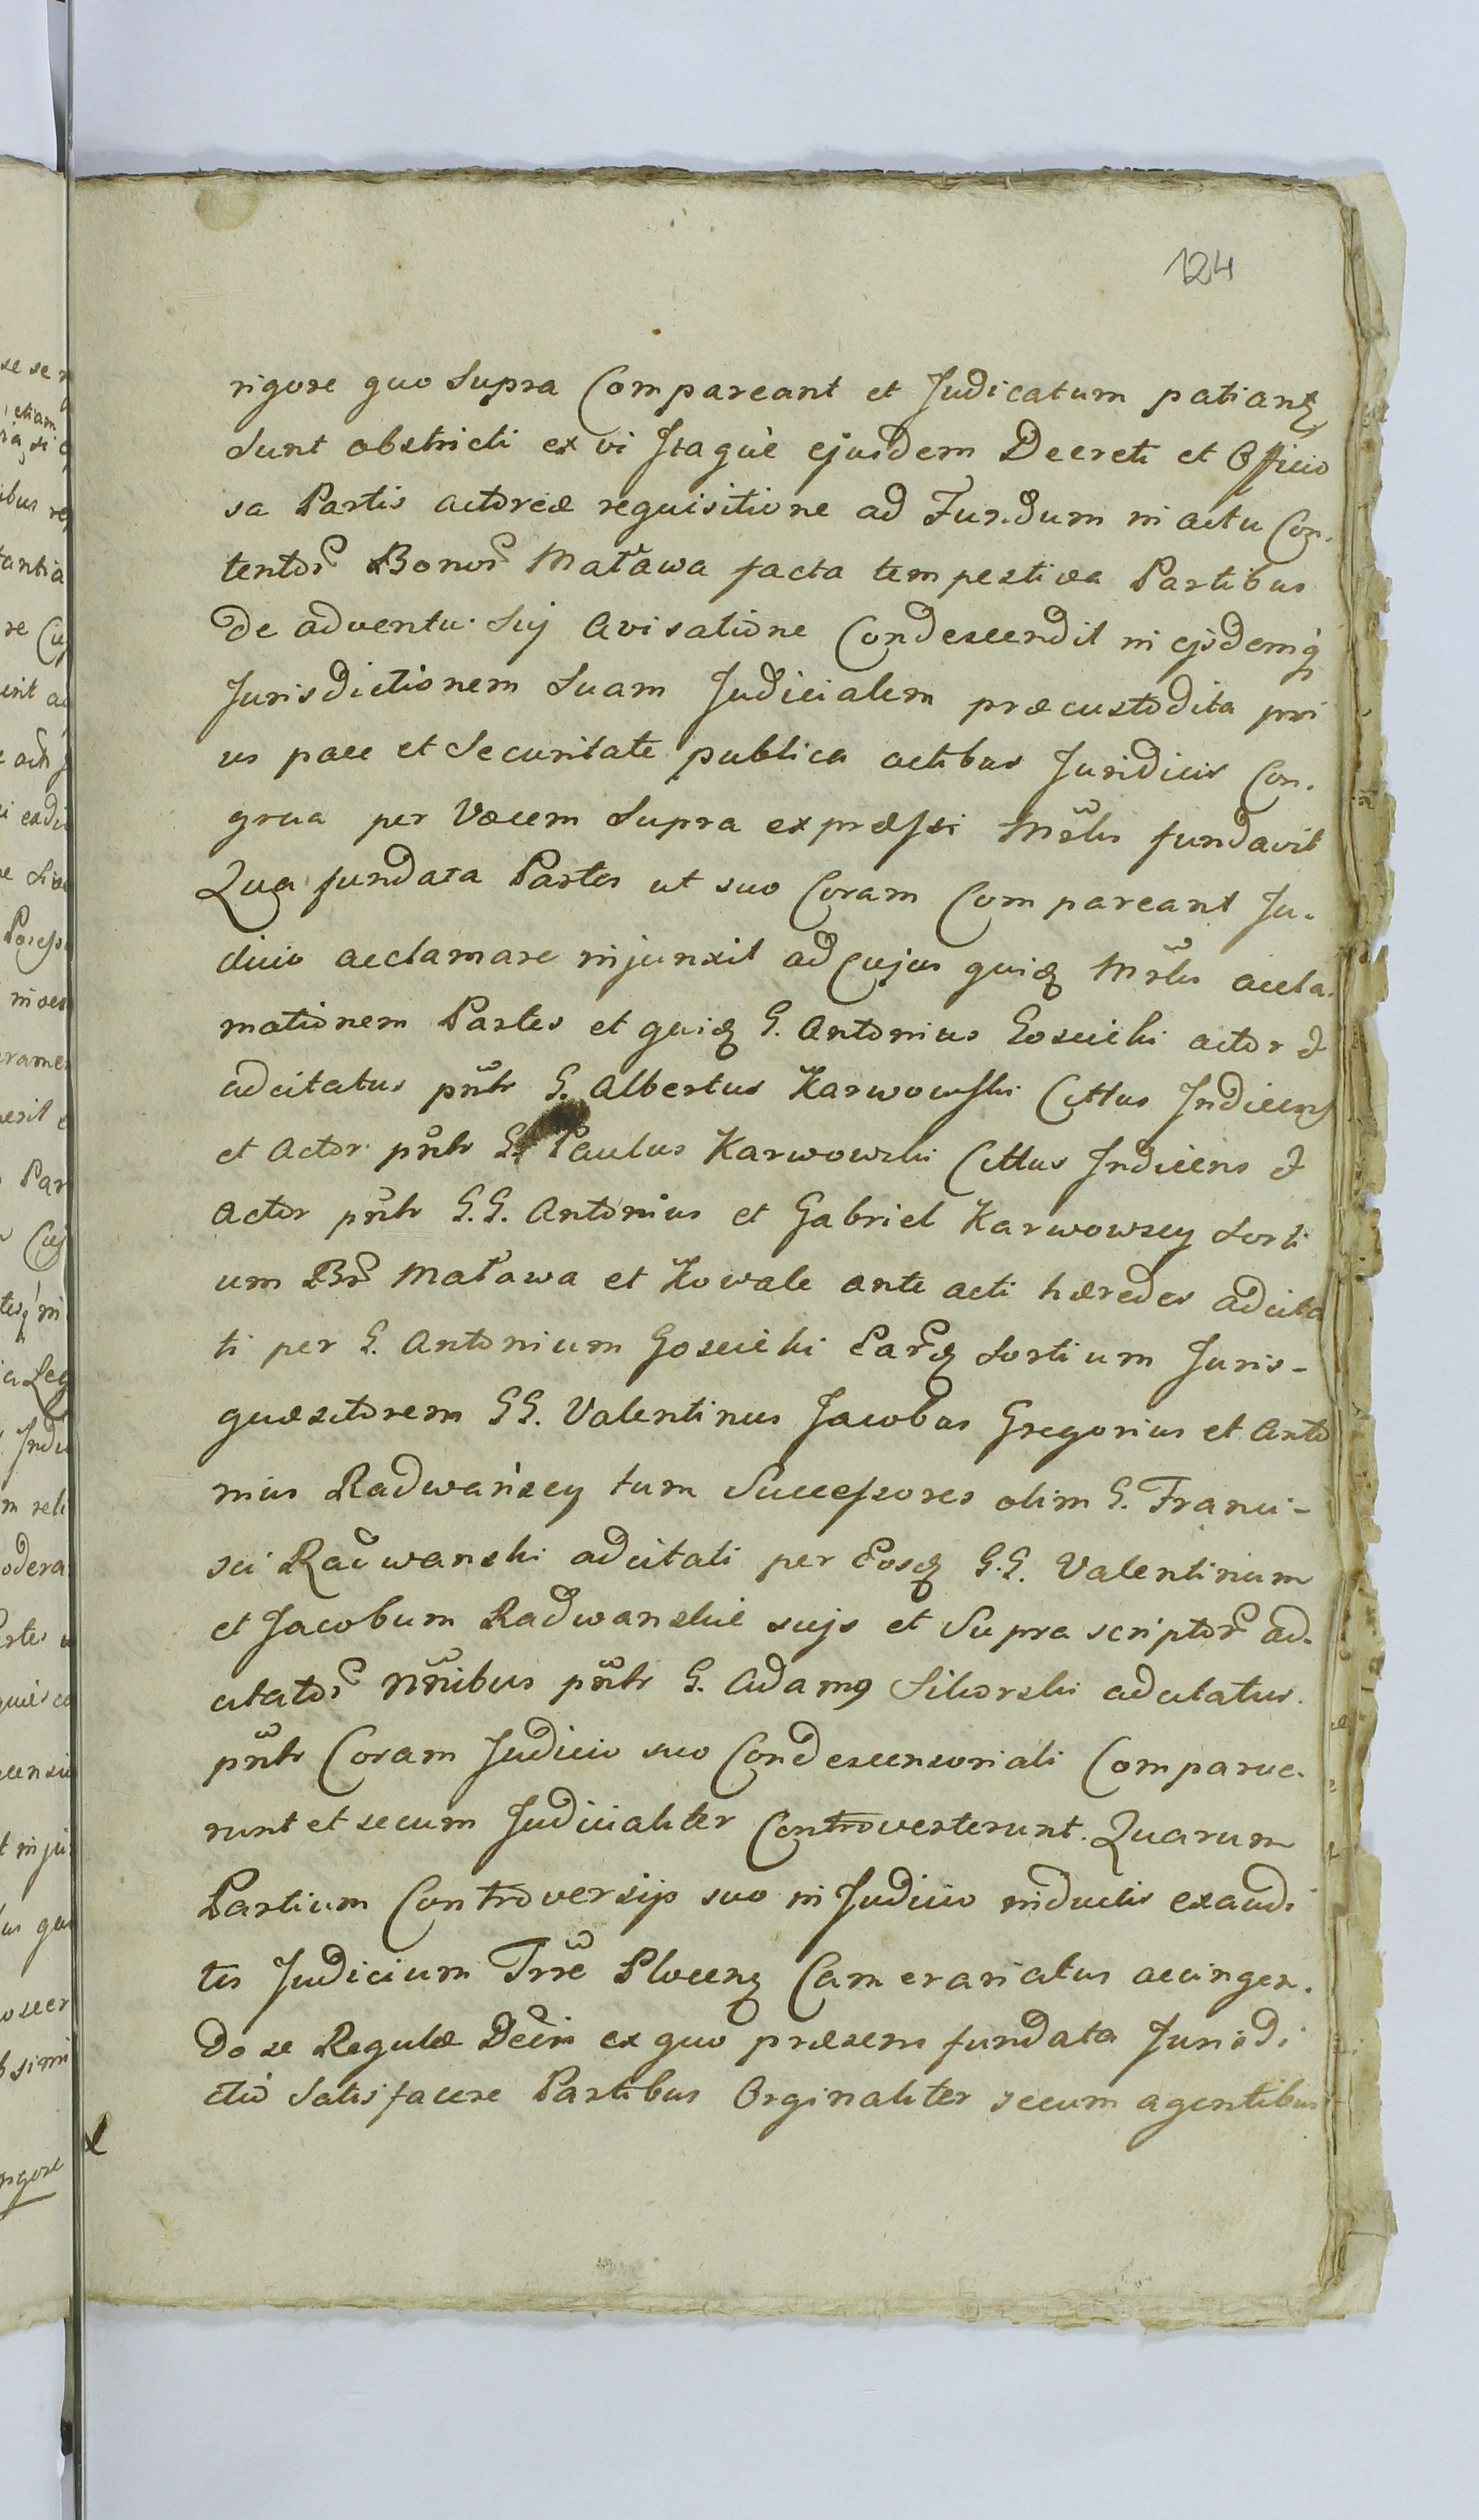 124
rigore quo Supra Compareant et Judicatum patiantʒ
Sunt obstricti ex vi Itaque ejusdem Decreti et Officio
sa Partis actoreæ requisitione ad Fundum in actu Con-
tentor̃ Bonor̃ Maława facta tempestiva Partibus
de adventu Suj Avisatione Condescendit in ejsdemq́
Jurisdictionem Suam Judicialem præcustodita pri
us pace et Securitate publica actibus Juridicis Con-
grua per Vocem Supra expræssi Mr̃lis fundavit
Qua fundata Partes ut suo Coram Compareant Ju-
dicio acclamare injunxit ad Cujus quidʒ Mr̃lis accla-
mationem Partes et quidʒ G. Antonius Goscicki actor &
adcitatus pñtr G. Albertus Karwowski Cittus Indicens
et Actor pñtr G. Paulus Karwowski Cittus Indicens &
Actor pñtr G.G. Antonius et Gabriel Karwowscy Sorti
um Br̃ Maława et Kowale ante acti hæredes adcita
ti per G. Antonium Goscicki Ear̃dʒ Sortium Juris-
quæsitorem GG. Valentinus Jacobus Gregorius et Anto
nius Radwańscy tum Successores olim G. Franci-
sci Radwanski adcitati per Eosdʒ G.G. Valentinum
et Jacobum Radwanskie sujs et Supra scriptor̃ ad-
citator̃ Nñibus pñtr G. Adamꝯ Sikorski adcitatus
pñtr Coram Judicio suo Condescensoriali Comparue-
runt et secum Judicialiter Controverterunt. Quarum
Partium Controversijs suo in Judicio inductis exaudi
tis Judicium Trr̃e Plocenʒ Camerariatus accingen-
do se Regulæ Decr̃i ex quo præsens fundata Jurisdi
ctio Satisfacere Partibus Orginaliter secum agentibus